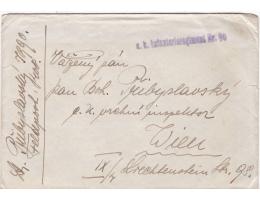 k. k. Infanterieregiment Nr. 90
Vážený pán
pan Boh. Přibyslavský
c. k. vrchní inspektor
Wien
IX/4 Liechtenstein Str.
Přibyslavský
Feldpost